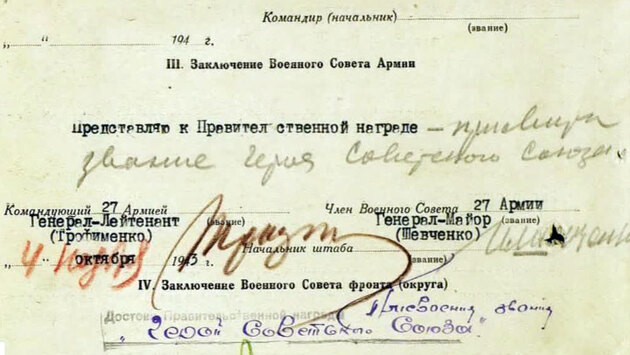 Командир (начальник)
(звание)
„ “ 194 г.
III. Заключение Военного Совета Армии
Представляю к Правител ственной награде —
звание Героя Советского Союза.
Командующий 27 Армией Член Военного Совета 27 Армии
Генерал-Лейтенант (звание) Генерал-Майор (звание)
(Трофименко) Начальник штаба (Шевченко)
„4 октября 1943 г. (звание)
IV. Заключение Военного Совета фронта (округа)
Присвоения звания
Достоин Правительственной награды
„Герой Советского Союза“